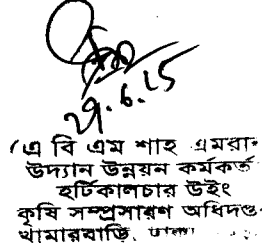 29.6.15
(এ বি এম শাহ এমরা
উদ্যান উন্নয়ন কর্মকর্ত
হর্টিকালচার উইং
কৃষি সম্প্রসারণ অধিদপ্ত
খামারবাড়ি, ঢাকা